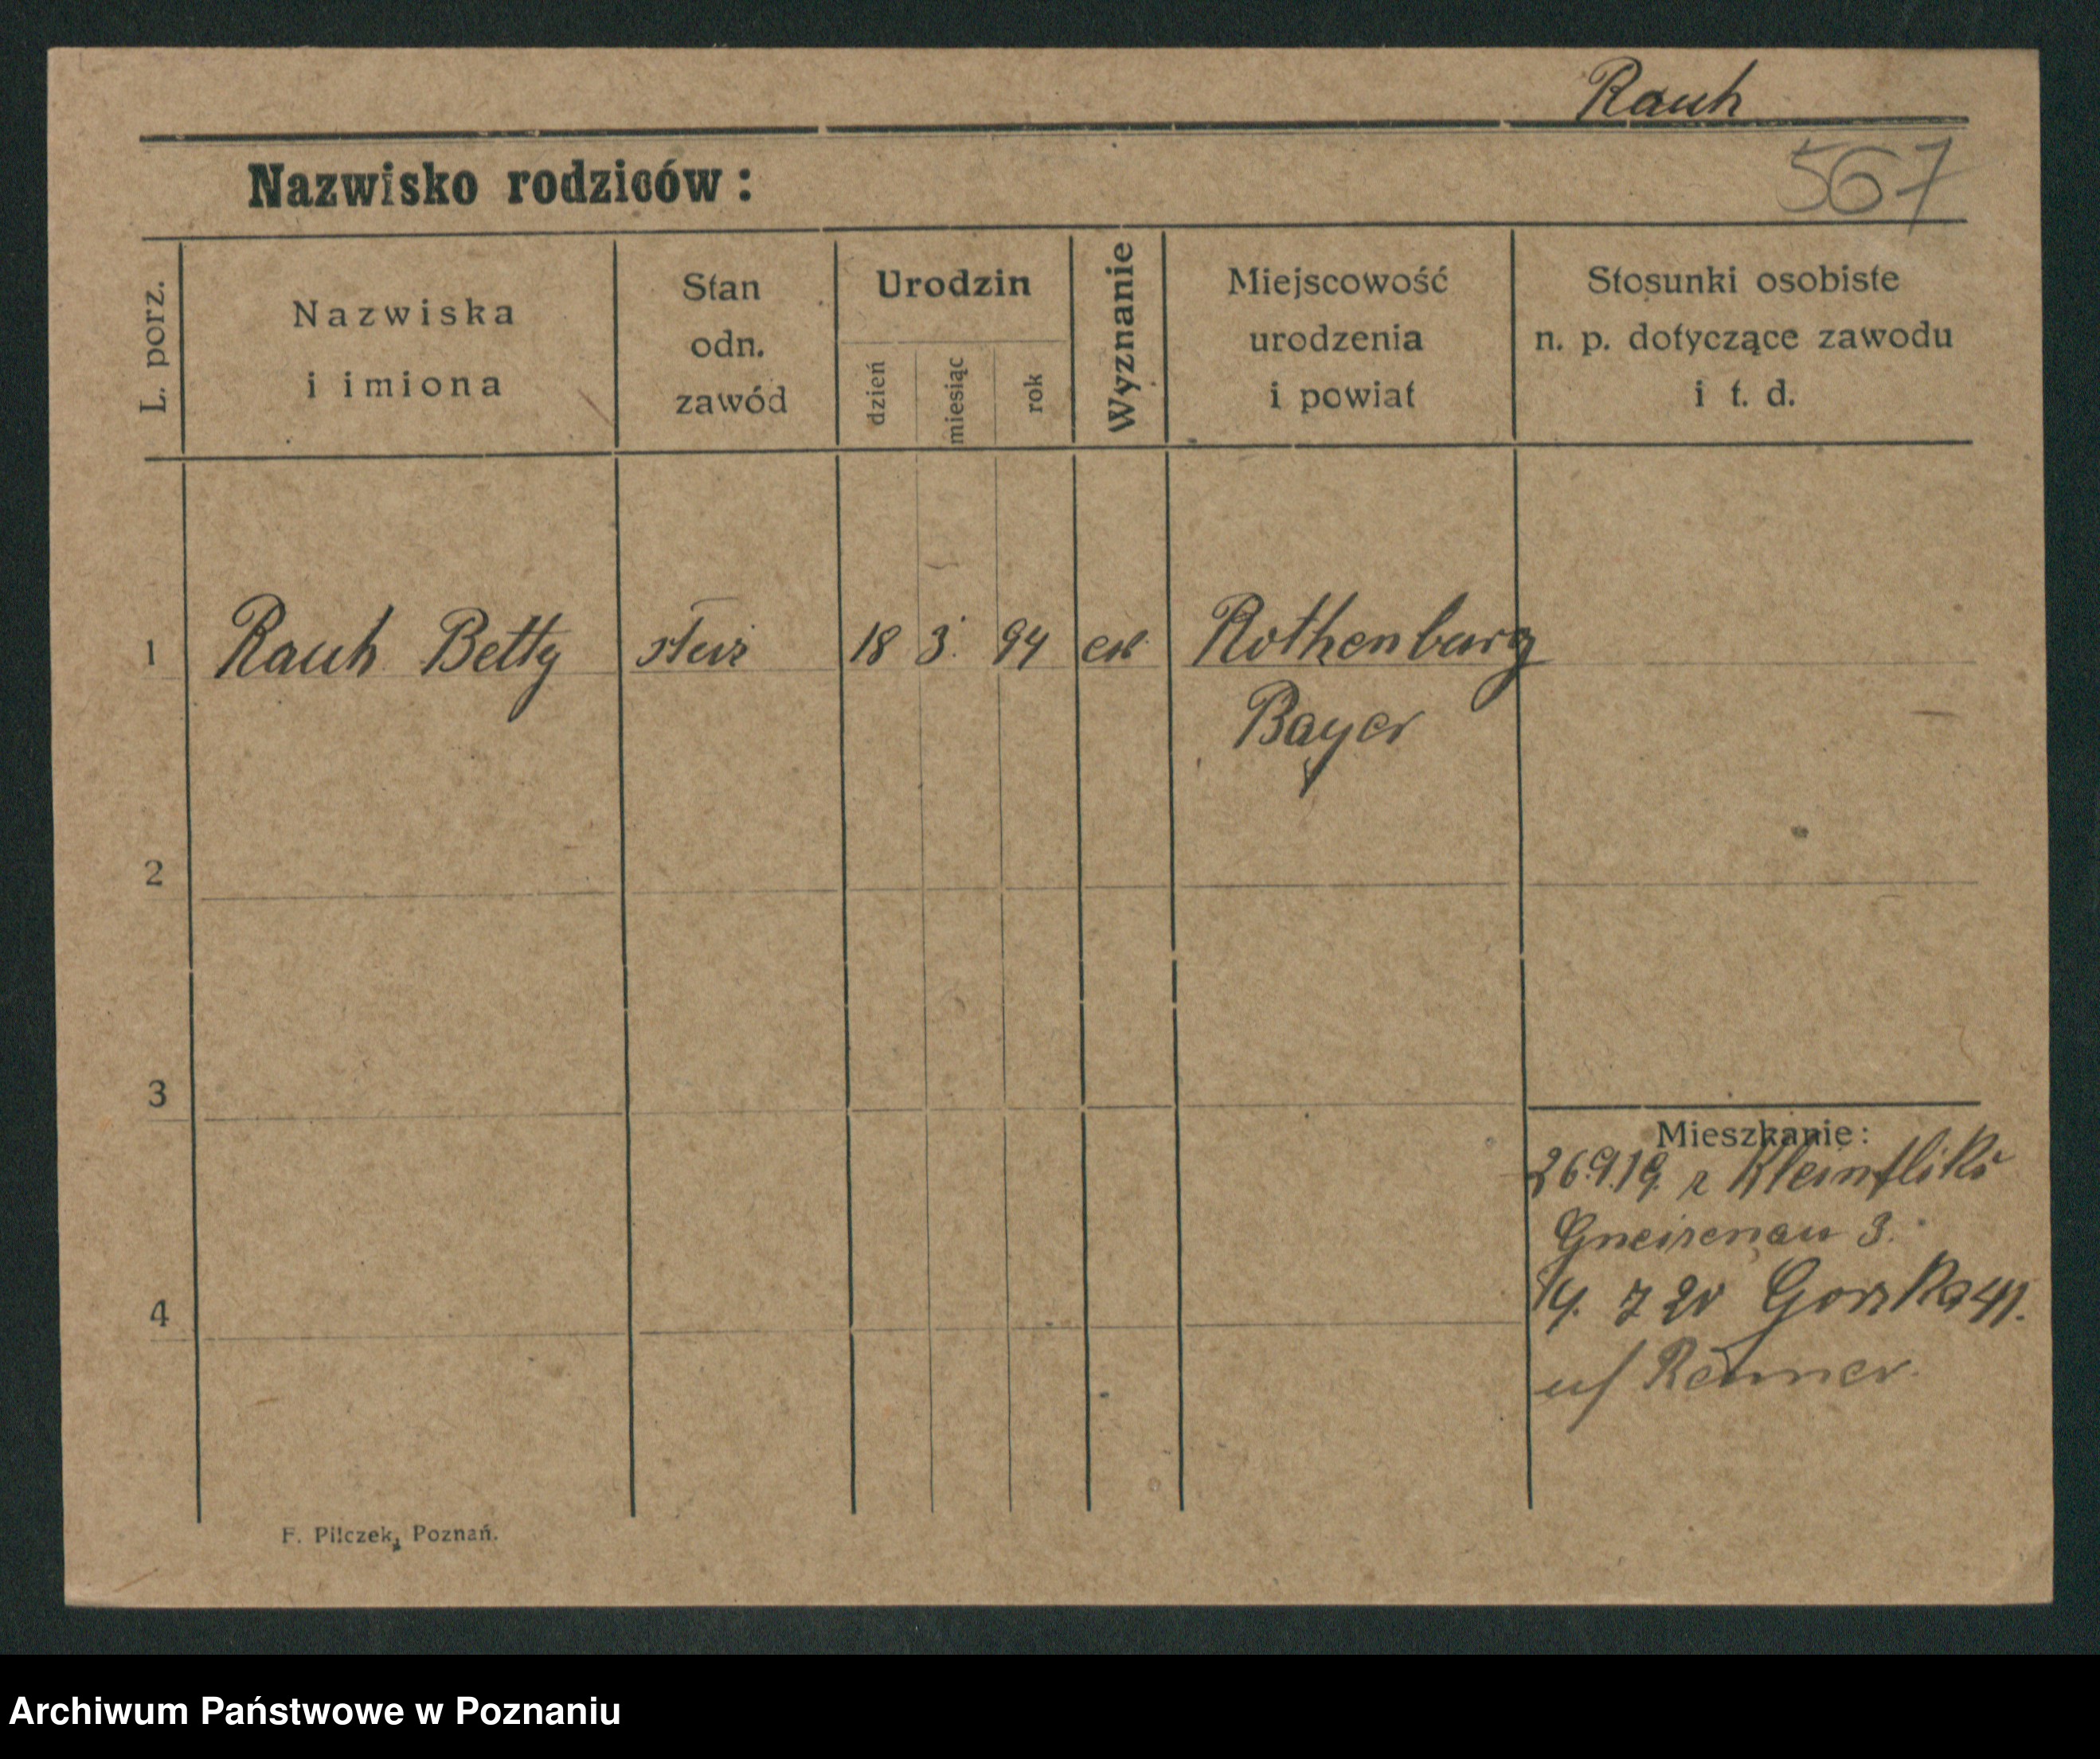 Rauh
Nazwisko rodziców:
567
L. porz.
Nazwiska
i imiona
Stan
odn.
zawód
Urodzin
dzień
miesiąc
rok
Wyznanie
Miejscowość
urodzenia
i powiat
Stosunki osobiste
n. p. dotyczące zawodu
i t. d.
1 Rauh Betty 18 3. 94 Rothenburg
Bayer
2
3
4
Mieszkanie:
26.9.19.
Gneisenau 3.
7 20
F. Pilczek, Poznań.
Archiwum Państwowe w Poznaniu